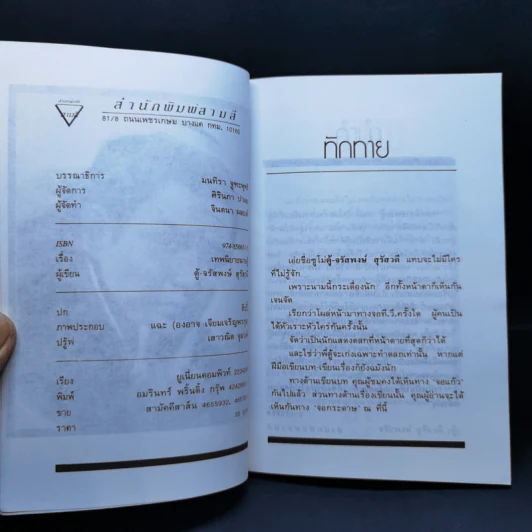 สำนักพิมพ์สามสี
81/8 ถนนเพชรเกษม บางแค กทม. 10160
บรรณาธิการ มนทิรา
ผู้จัดการ ศิรินภา
ผู้จัดทำ จินตนา
ISBN
เรื่อง
ผู้เขียน ตู้-จรัสพงษ์ สุรัสวดี
ปก
ภาพประกอบ แฉะ (องอาจ เจียมเจริญพรกุล)
ปรู๊ฟ เสาวณีต
เรียง ยูเนี่ยนคอมพิวท์
พิมพ์ อมรินทร์ พริ้นติ้ง กรุ๊พ
ขาย สามัคคีสาส์น
ราคา
ทักทาย
เอ่ยชื่อซูโม่ตู้-จรัสพงษ์ สุรัสวดี แทบจะไม่มีใคร
ที่ไม่รู้จัก
เพราะนามนี้กระเดื่องนัก อีกทั้งหน้าตาก็เห็นกัน
เจนจัด
เรียกว่าโผล่หน้ามาทางจอที.วี.ครั้งใด ผู้คนเป็น
ได้หัวเราะหัวใคร่กันครั้งนั้น
จัดว่าเป็นนักแสดงตลกที่หน้าตายที่สุดก็ว่าได้
และใช่ว่าพี่ตู้จะเก่งเฉพาะทำตลกเท่านั้น หากแต่
ฝีมือเขียนบท-เขียนเรื่องก็ยังแม้งนัก
ทางด้านเขียนบท คุณผู้ชมคงได้เห็นทาง 'จอแก้ว'
กันไปแล้ว ส่วนทางด้านเรื่องเขียนนั้น คุณผู้อ่านจะได้
เห็นกันทาง 'จอกระดาษ' ณ ที่นี้